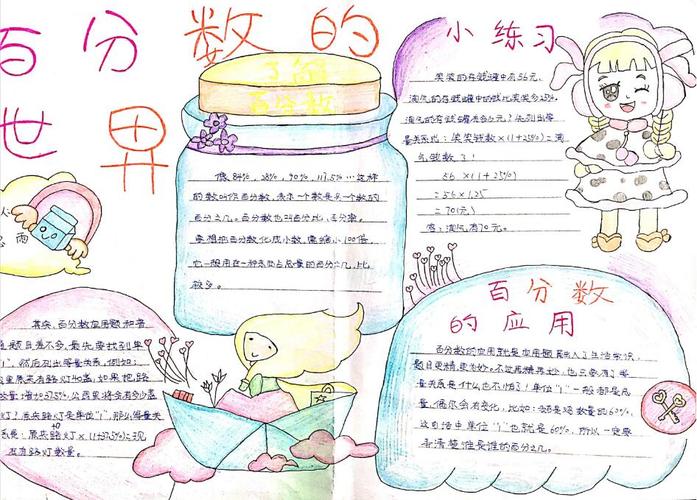 百分数的
世界
了解
百分数
像84%，28%，90%，117.5%…这样
的数叫作百分数，表示一个数是另一个数的
百分之几。百分数也叫百分比、百分率。
要想把百分数化成小数，需缩小100倍，
它一般用在一种东西占总量的百分之几，比
较多。
小练习
笑笑的存钱罐中有56元，
淘气的存钱罐中的钱比笑笑多25%，
淘气的存钱罐
量关系式：笑笑钱数×(1+25%)=淘
气钱数
56×(1+25%)
=56×1.25
=70(元)
答：淘气有70元。
其实，百分数应用题和普
题目差不多，最先要找到单
"1"，然后列出等量关系，例如：
公里原来有路灯40盏，如果把路
数量增加37.5%，公里将会有多少盏
灯？原来路灯是单位"1"，那么等量关
系是：原来路灯×(1+37.5%)=现
在有路灯数量。
百分数
的应用
百分数的应用就是应用题融入了生活常识，
题目更精更妙，不过再精再妙，也只要有了等
量关系是什么也不怕了！单位"1"一般都是总
量，偶尔会有变化，比如：都是总数量的60%，
这句话中单位"1"也就是60%，所以一定要
弄清楚谁是谁的百分之几。